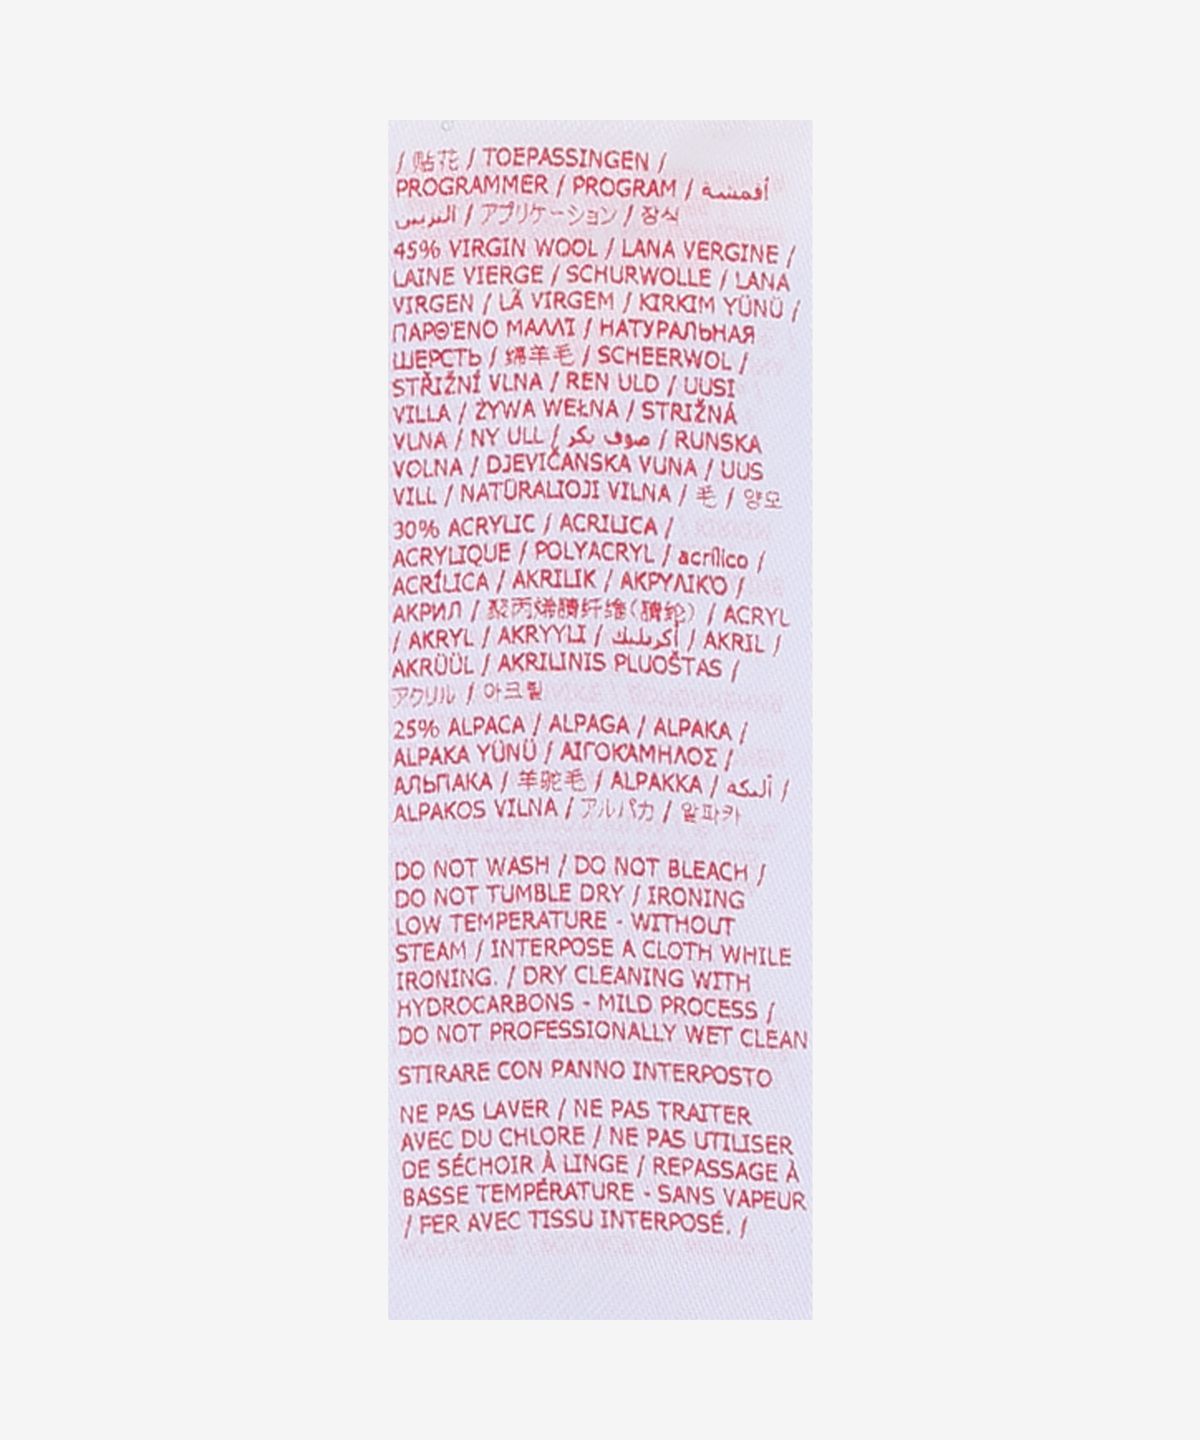 / 贴花 / TOEPASSINGEN /
PROGRAMMER / PROGRAM / أقمشة
التزيين / アプリケーション / 장식
45% VIRGIN WOOL / LANA VERGINE /
LAINE VIERGE / SCHURWOLLE / LANA
VIRGEN / LÃ VIRGEM / KIRKIM YÜNÜ /
ΠΑΡΘΈΝΟ ΜΑΛΛΊ / НАТУРАЛЬНАЯ
ШЕРСТЬ / 绵羊毛 / SCHEERWOL /
STŘIŽNÍ VLNA / REN ULD / UUSI
VILLA / ŻYWA WEŁNA / STRIŽNÁ
VLNA / NY ULL / صوف بكر / RUNSKA
VOLNA / DJEVIČANSKA VUNA / UUS
VILL / NATŪRALIOJI VILNA / 毛 / 양모
30% ACRYLIC / ACRILICA /
ACRYLIQUE / POLYACRYL / acrílico /
ACRÍLICA / AKRILIK / ΑΚΡΥΛΙΚΌ /
АКРИЛ / 聚丙烯腈纤维(腈纶) / ACRYL
/ AKRYL / AKRYYLI / أكريليك / AKRIL /
AKRÜÜL / AKRILINIS PLUOŠTAS /
アクリル / 아크릴
25% ALPACA / ALPAGA / ALPAKA /
ALPAKA YÜNÜ / ΑΙΓΟΚΆΜΗΛΟΣ /
АЛЬПАКА / 羊驼毛 / ALPAKKA / ألبكه /
ALPAKOS VILNA / アルパカ / 알파카
DO NOT WASH / DO NOT BLEACH /
DO NOT TUMBLE DRY / IRONING
LOW TEMPERATURE - WITHOUT
STEAM / INTERPOSE A CLOTH WHILE
IRONING. / DRY CLEANING WITH
HYDROCARBONS - MILD PROCESS /
DO NOT PROFESSIONALLY WET CLEAN
STIRARE CON PANNO INTERPOSTO
NE PAS LAVER / NE PAS TRAITER
AVEC DU CHLORE / NE PAS UTILISER
DE SÉCHOIR À LINGE / REPASSAGE À
BASSE TEMPÉRATURE - SANS VAPEUR
/ FER AVEC TISSU INTERPOSÉ. /